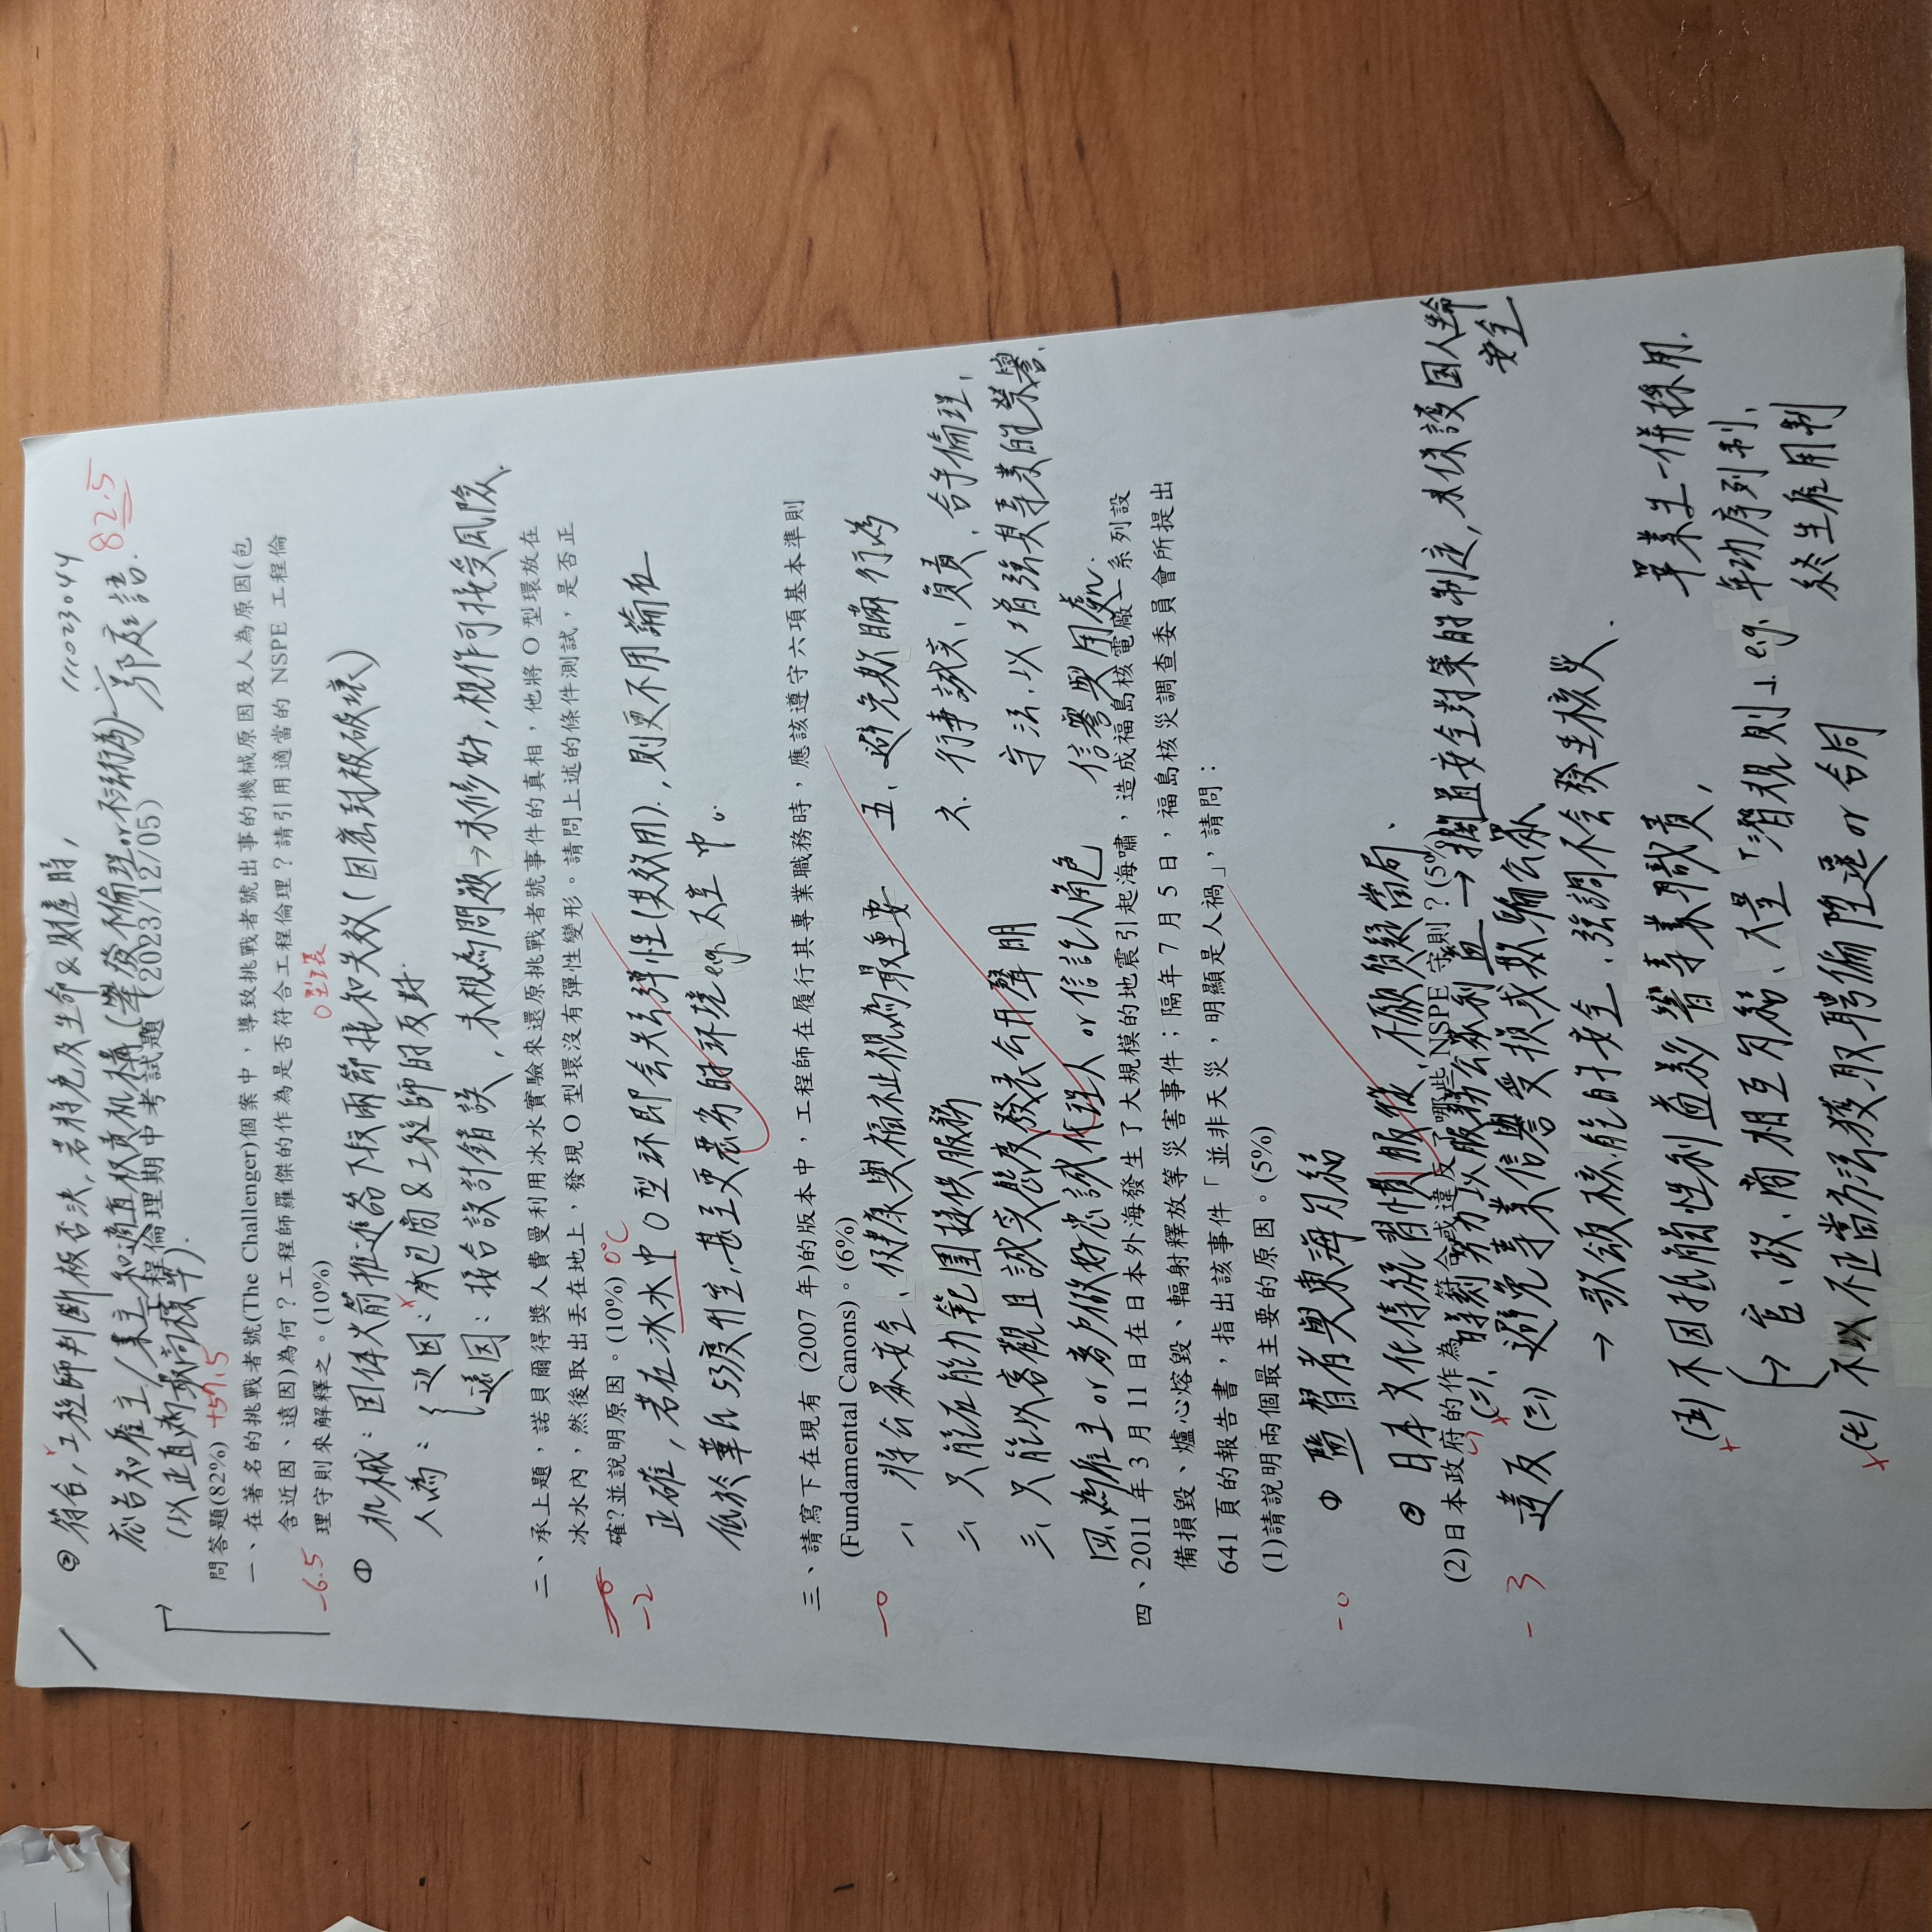 ② 符合, 工程師判斷被否決, 若將危及生命&財產時,
111023044
82.5
應告知雇主/業主和適宜权責机構(舉發不倫理or不法行為)
郭庭語.
工程倫理期中考試題 (2023/12/05)
(以正直為最高標準).
問答題(82%) +57.5
一、在著名的挑戰者號(The Challenger)個案中,導致挑戰者號出事的機械原因及人為原因(包
含近因、遠因)為何?工程師羅傑的作為是否符合工程倫理?請引用適當的 NSPE 工程倫
-6.5 理守則來解釋之。(10%)
O型環
① 机械: 固体火箭推進器下段兩節接如失效(因密封被破壞)
人為: 近因: 承包商&工程師的反對.
遠因: 接合設計錯誤, 未視為問題→未修好, 視作可接受風險.
二、承上題,諾貝爾得獎人費曼利用冰水實驗來還原挑戰者號事件的真相,他將 O 型環放在
冰水內,然後取出丟在地上,發現 O 型環沒有彈性變形。請問上述的條件測試,是否正
確?並說明原因。(10%) 0°C
-2
正確, 若在冰水中O型环即会失去彈性(其效用)., 則更不用論在
低於華氏53度升空, 甚至更惡劣的环境e.g. 太空中。
三、請寫下在現有 (2007 年)的版本中,工程師在履行其專業職務時,應該遵守六項基本準則
(Fundamental Canons)。(6%)
-0
一、將公眾安全、健康與福祉視為最重要
二、只能在能力範圍提供服務
三、只能以客觀且誠实態度發表公開聲明
四、為雇主or客戶做好忠誠代理人or信託人角色
五、避免欺瞞行為
六. 行事誠实、負責、合乎倫理、
守法, 以增強其專業的榮譽、
信譽與用處.
四、2011 年 3 月 11 日在日本外海發生了大規模的地震引起海嘯,造成福島核電廠一系列設
備損毀、爐心熔毀、輻射釋放等災害事件;隔年 7 月 5 日,福島核災調查委員會所提出
641 頁的報告書,指出該事件「並非天災,明顯是人禍」,請問:
(1)請說明兩個最主要的原因。(5%)
-0
① 監督者與東海勾結
② 日本文化傳統習慣服從, 不願質疑當局.
(2)日本政府的作為,符合或違反了哪些 NSPE 守則?(5%)
(二)、時刻努力以服務公眾利益 → 擱置安全對策的制定, 未保護国人生命
安全
-3 違反 (三) 避免專業信譽受損或欺騙公眾
→ 歌頌核能的安全、強調不会發生核災.
(五) 不因抵觸性利益影響專業職責,
→ 官、政、商相互勾結、大量「潛規則」. e.g.
畢業生一併採用.
年功序列制、
終生雇用制
(七) 不以不正當方法獲取聘僱陞遷or合同